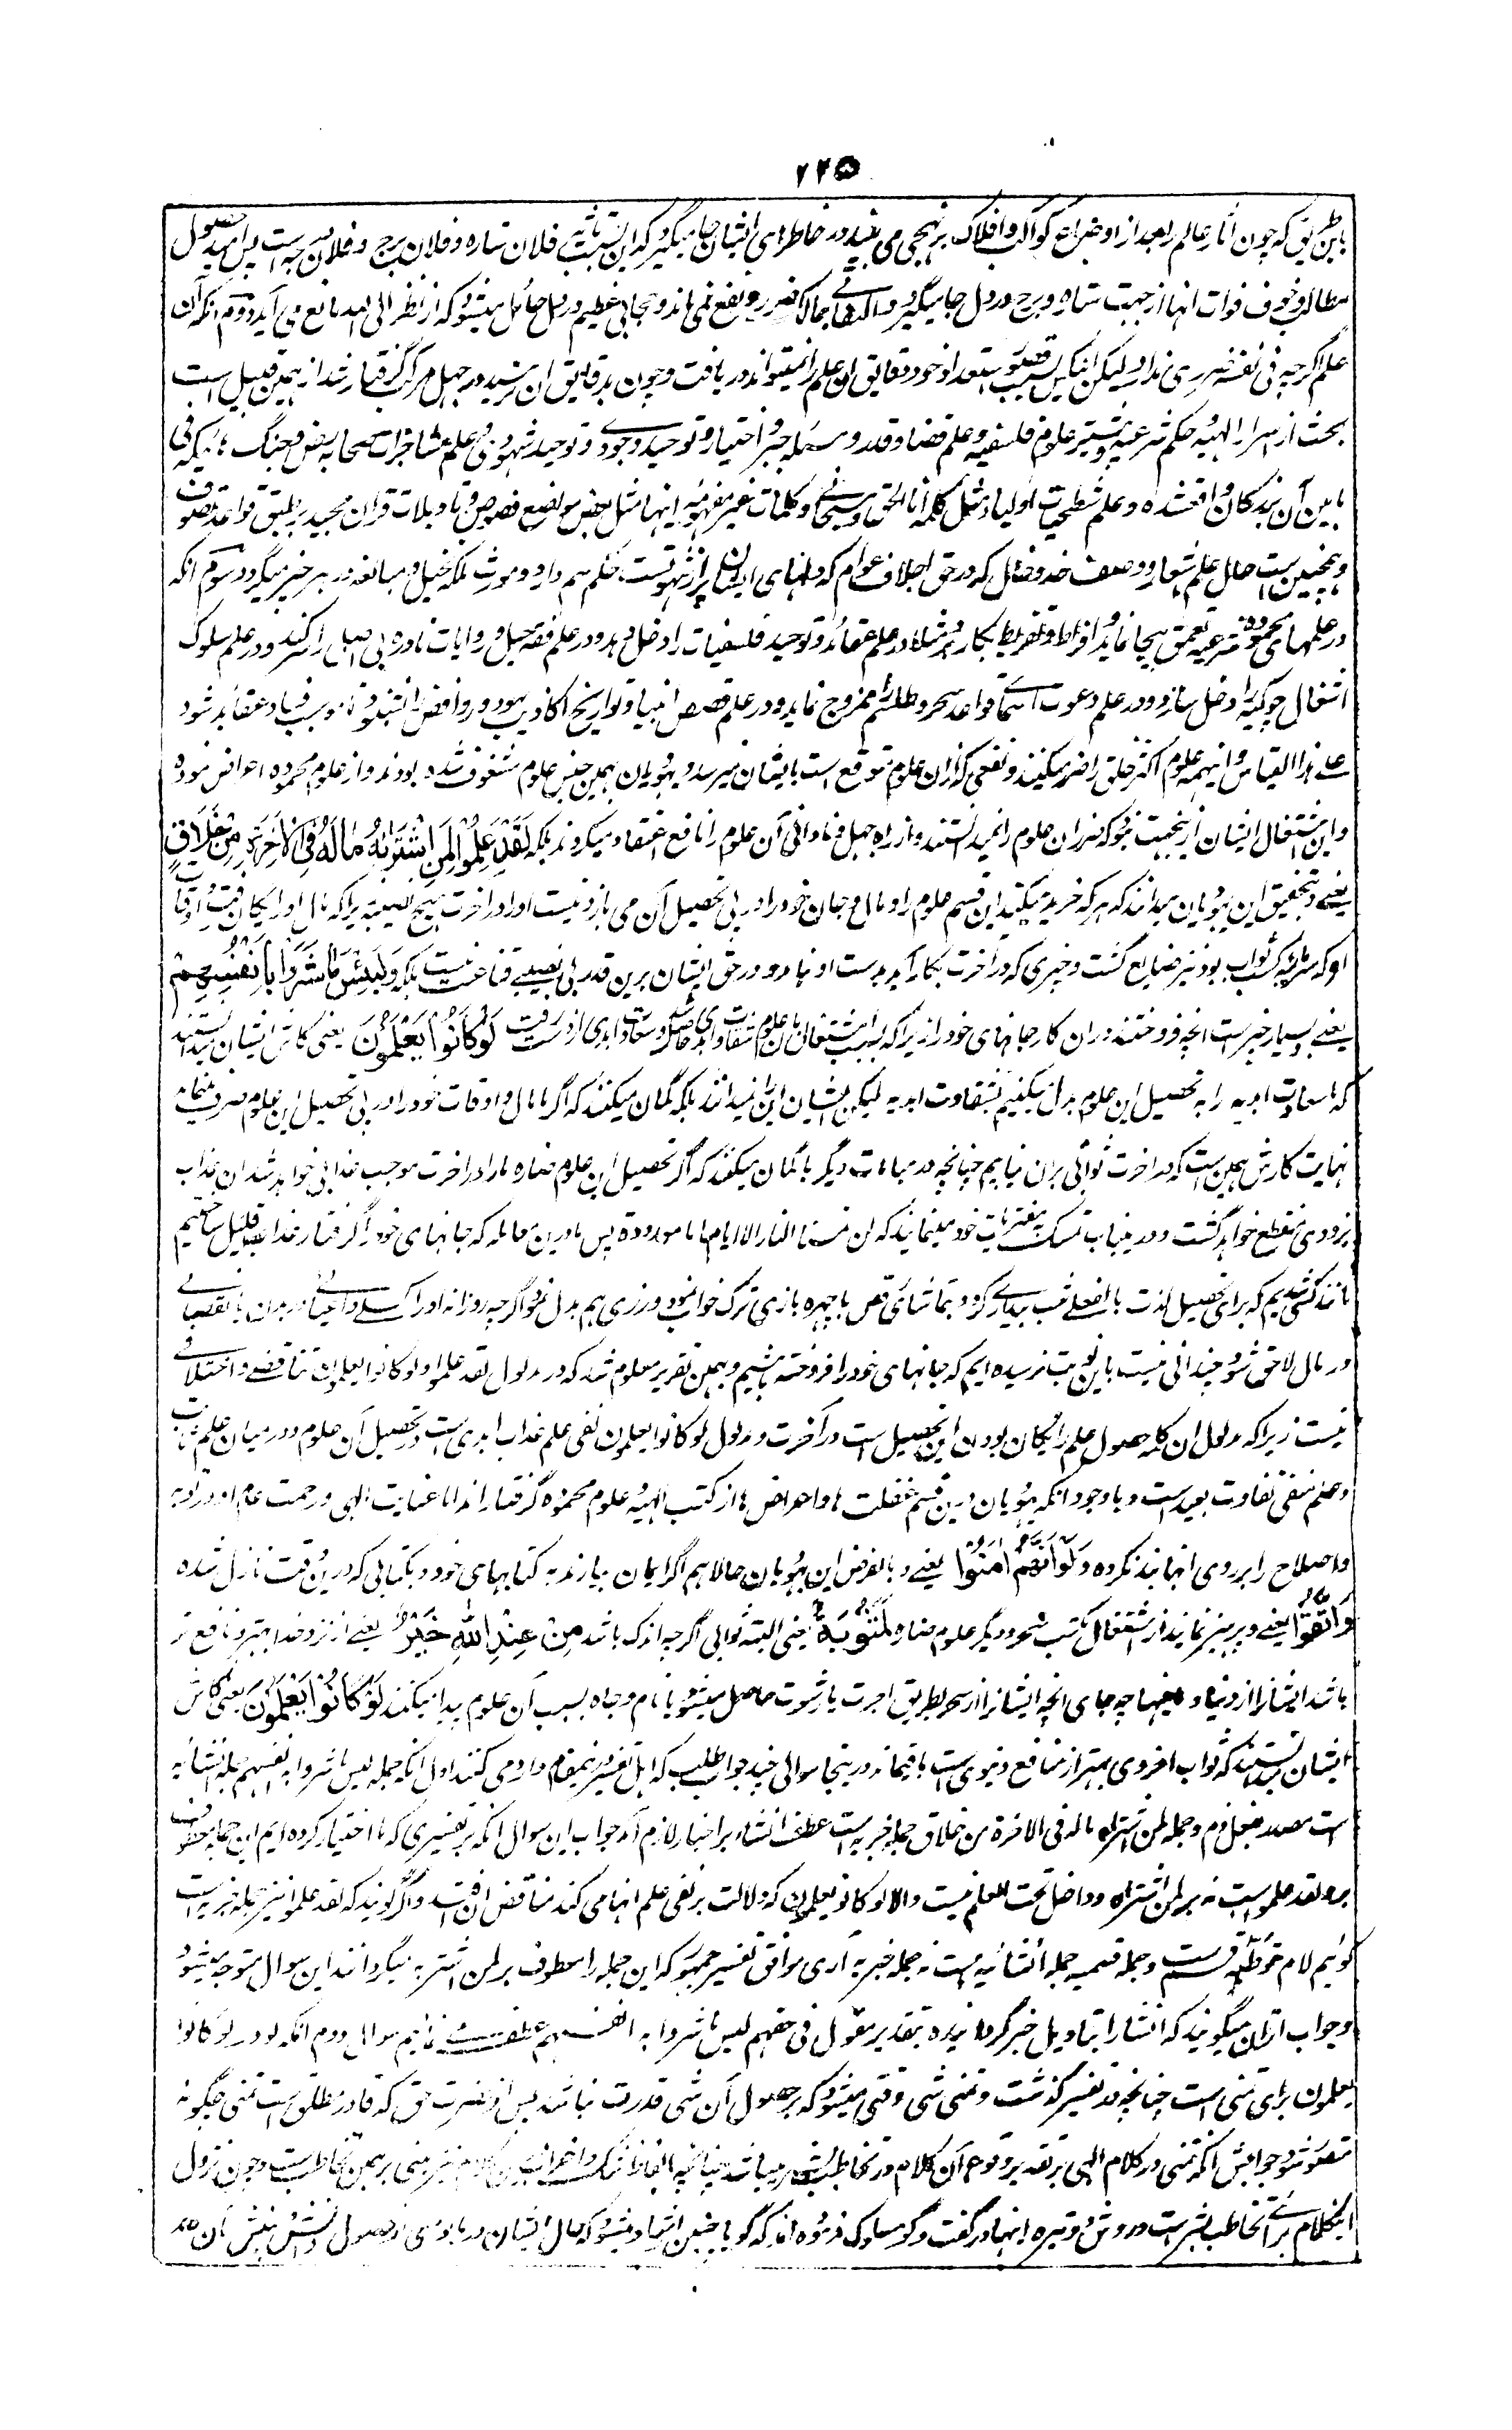 ۲۲۵
باین طریق که چون آثار عالم را بعد از اوضاع کواکب و افلاک بر نهجی می بیند در خاطرهای ایشان جا میگیرد که این بسبب تاثیر فلان ستاره و فلان برج و فلان درجه است پس امید حصول
مطالب و خوف فوات آنها از جهت ستاره و برج در دل جا میگیرد و التفاتی بمالک ضرر و نفع نمی ماند و حجابی عظیم در دل حائل میشود که از نظر الی الله مانع می آید دوم آنکه آن
علم اگرچه فی نفسه ضرری ندارد لیکن این کس بسبب قصور استعداد خود دقایق آن علم را نمیتواند دریافت و چون بدقایق آن نرسید در جهل مرکب گرفتار شد از همین قبیل است
بحث از اسرار الهیه و حکم شرعیه و بیشتر علوم فلسفیه و علم قضا و قدر و مسئله جبر و اختیار و توحید وجودی و توحید شهودی و علم مشاجرات صحابه
مابین آن بزرگان واقع شده و علم شطحیات اولیا مثل کلمه انا الحق و سبحانی و کلمات غیر مفهومه اینها مثل بعض مواضع فصوص و تاویلات قرآن مجید بر طبق قواعد تصوف
و همچنین است حال علم اشعار و وصف خد و خال که در حق اجلاف عوام که دلهای ایشان پر از شهوتست حکم سم دارد و مورث ملکه تخیل و مبالغه در هر چیز میگردد سوم آنکه
در علمهای محموده شرعیه تعمق بیجا نماید و افراط و تفریط بکار برد مثلا در علم عقائد و توحید فلسفیات را دخل دهد و در علم فقه حیل و روایات نادره بی اصل را ذکر کند و در علم سلوک
اشغال جوگیه را دخل سازد و در علم دعوت اسمائی قواعد سحر و طلسم را ممزوج نماید و در علم قصص انبیا و تواریخ اکاذیب یهود و روافض را بشنود تا موجب فساد عقائد شود
علی هذا القیاس و اینهمه علوم اکثر خلق را ضرر میکنند و نفعی که از ان علوم متوقع است بایشان نمیرسد و یهودیان بهمین جنس علوم مشغوف شده بودند و از علوم محموده اعراض نموده
و این اشتغال ایشان ازینجهت نبود که ضرر ان علوم را نمیدانستند و از راه جهل و نادانی آن علوم را نافع اعتقاد میکردند بلکه لَقَدْ عَلِمُوْا لَمَنِ اشْتَرٰىهُ مَا لَهٗ فِی الْاٰخِرَةِ مِنْ خَلَاقٍ
یعنی و بتحقیق این یهودیان میدانند که هر که خرید میکند این قسم علوم را و مال و جان خود را در پی تحصیل آن می بازد نیست او را در آخرت هیچ نصیبی زیرا که مال او رایگان رفت و اوقات
او که سرمایه کسب ثواب بود نیز ضایع گشت و چیزی که در آخرت بکار آید بدست او نیامد و در حق ایشان برین قدر بی نصیبی قناعت نیست بلکه وَلَبِئْسَ مَا شَرَوْا بِهٖ اَنْفُسَهُمْ
یعنی و بسیار بد چیزیست آنچه فروختند در ان کار جانهای خود را زیرا که بسبب اشتغال بان علوم شقاوت ابدی حاصل شد و سعادت ابدی از دست رفت لَوْ كَانُوْا یَعْلَمُوْنَ یعنی کاش ایشان میدانستند
که ما سعادت ابدیه را به تحصیل این علوم بدل میکنیم بشقاوت ابدیه لیکن ایشان این را نمیدانند بلکه گمان میکنند که اگر ما مال و اوقات خود را در پی تحصیل این علوم صرف نمائیم
نهایت کارش همین است که در آخرت ثوابی بر ان نیابیم چنانچه در مباحات دیگر یا گمان میکنند که اگر تحصیل این علوم ضاره ما را در آخرت موجب عذابی خواهد شد ان عذاب
بزودی منقطع خواهد گشت و درینباب تمسک بمفتریات خود مینمایند که لن تمسنا النار الا ایاما معدودة پس ما درین معامله که جانهای خود را گرفتار عذاب قلیل ساختیم
مانند کسی شدیم که برای تحصیل لذت بالفعل شب بیداری کرد و بتماشای رقص یا چهره بازی ترک خواب نمود و زری هم بدل نمود اگرچه روزانه او را کسلی و اعیائی در بدن یا نقصانی
در مال لاحق شود چندانی نیست باین نوبت نرسیده ایم که جانهای خود را فروخته باشیم و بهمین تقریر معلوم شد که در مدلول لقد علموا و لو کانوا یعلمون تناقضی و اختلافی
نیست زیرا که مدلول ان کلمه حصول علم رایگان بودن این تحصیل است در آخرت و مدلول لو کانوا یعلمون نفی علم عذاب ابدی است در تحصیل آن علوم و در میان علم ثابت
و علم منفی تفاوت بعید است و باوجود آنکه یهودیان درین قسم غفلت ها و اعراض ها از کتب الهیه و علوم محموده گرفتار اند اما عنایت الهی و رحمت عام او در توبه
و اصلاح را بر روی انها بند نکرده وَلَوْ اَنَّهُمْ اٰمَنُوْا یعنی و بالفرض این یهودیان حالا هم اگر ایمان بیارند به کتابهای خود و بکتابی که درین وقت نازل شده
وَاتَّقَوْا یعنی و پرهیز نمایند از اشتغال بکتب سحر و دیگر علوم ضاره لَمَثُوْبَةٌ یعنی البته ثوابی اگرچه اندک باشد مِنْ عِنْدِ اللّٰهِ خَیْرٌ یعنی از نزد خدا بهتر و نافع تر
باشد ایشان را از دنیا و مافیها چه جای آنچه ایشان را از سحر بطریق اجرت یا رشوت حاصل میشود یا نام و جاه بسبب آن علوم پیدا میکنند لَوْ كَانُوْا یَعْلَمُوْنَ یعنی کاش
ایشان میدانستند که ثواب اخروی بهتر از منافع دنیوی است باقیماند درینجا سوالی چند جواب طلب که اهل تفسیر درینمقام وارد می کنند اول آنکه جمله لبئس ما شروا به انفسهم جمله انشائیه
است مصدر بفعل ذم و جمله لمن اشتراه ما له فی الاخرة من خلاق جمله خبریه است عطف انشاء بر اخبار لازم آمد جواب این سوال آنکه بر تفسیری که ما اختیار کرده ایم این جمله معطوف
بر و لقد علموا است نه بر لمن اشتراه و داخل تحت العلم نیست و الا لو کانوا یعلمون که دلالت بر نفی علم انها می کند مناقض ان افتد و اگر گویند که لقد علموا نیز جمله خبریه است
گوئیم لام موطئه قسم ست و جمله قسمیه جمله انشائیه است نه جمله خبریه آری موافق تفسیر جمهور که این جمله را معطوف بر لمن اشتریه میگردانند این سوال متوجه میشود
و جواب ازان میگویند که انشا را بتاویل خبر گردانیده بتقدیر مقول فی حقهم لبئس ما شروا به انفسهم عطف نمائیم سوال دوم آنکه لو در لو کانوا
یعلمون برای تمنی است چنانچه در تفسیر گذشت و تمنی شی وقتی میشود که بر حصول آن شی قدرت نباشد پس از حضرت حق که قادر مطلق است تمنی چگونه
متصور شود جوابش آنکه تمنی در کلام الهی بر تقدیر وقوع آن کلام در تخاطب بشر میباشد چنانچه الفاظ شک و اضراب درین کلام نیز مبنی بر همین تخاطب است و چون نزول
اینکلام برای تخاطب بشر است در روش و تیره اینها در گفت و گو سلوک فرموده اند که گویا چنین ارشاد میشود که حال ایشان در بادی و حصول دانش بینش آن حد